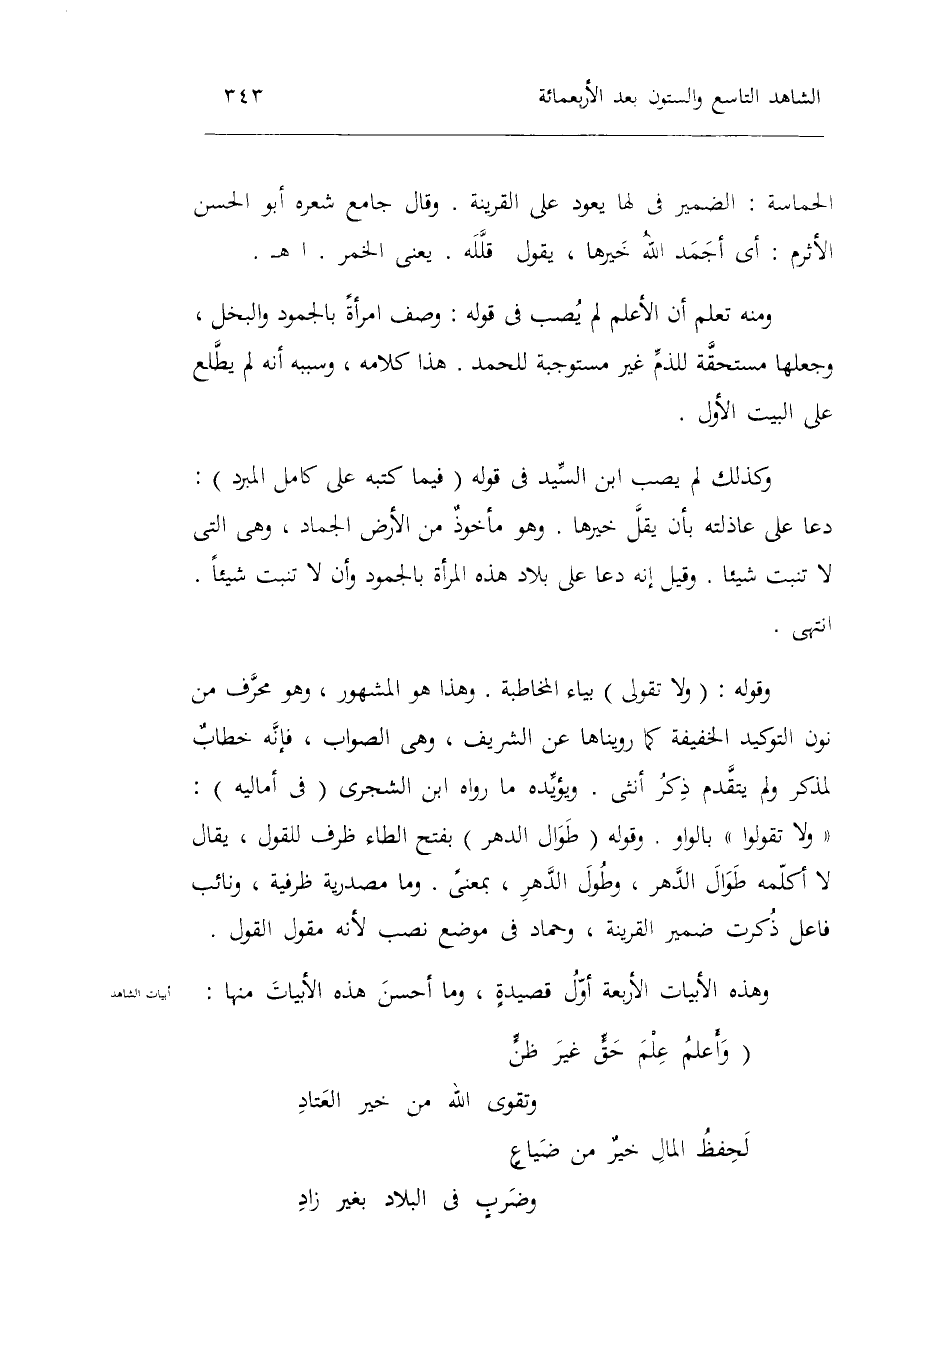 الشاهد التاسع والستون بعد الأربعمائة ٣٤٣
الحماسة : الضمير فى لها يعود على القرينة . وقال جامع شعره أبو الحسن
الأثرم : أى أجَمَد اللهُ خَيرها ، يقول قلَّلَه . يعنى الخمر . ا هـ .
ومنه تعلم أن الأعلم لم يُصب فى قوله : وصف امرأةً بالجمود والبخل ،
وجعلها مستحقَّة للذمِّ غير مستوجبة للحمد . هذا كلامه ، وسببه أنه لم يطَّلع
على البيت الأول .
وكذلك لم يصب ابن السِّيد فى قوله ( فيما كتبه على كامل المبرد ) :
دعا على عاذلته بأن يقلَّ خيرها . وهو مأخوذٌ من الأرض الجماد ، وهى التى
لا تنبت شيئا . وقيل إنه دعا على بلاد هذه المرأة بالجمود وأن لا تنبت شيئاً .
انتهى .
وقوله : ( ولا تقولى ) بياء المخاطبة . وهذا هو المشهور ، وهو محرَّف من
نون التوكيد الخفيفة كما رويناها عن الشريف ، وهى الصواب ، فإنَّه خطابٌ
لمذكر ولم يتقَّدم ذِكرُ أنثى . ويؤيِّده ما رواه ابن الشجرى ( فى أماليه ) :
« ولا تقولوا » بالواو . وقوله ( طَوَال الدهر ) بفتح الطاء ظرف للقول ، يقال
لا أكلّمه طَوَالَ الدَّهر ، وطُولَ الدَّهرِ ، بمعنىً . وما مصدرية ظرفية ، ونائب
فاعل ذُكرت ضمير القرينة ، وحماد فى موضع نصب لأنه مقول القول .
وهذه الأبيات الأربعة أوّلُ قصيدةٍ ، وما أحسنَ هذه الأبياتَ منها : أبيات الشاهد
( وَأَعلمُ عِلْمَ حَقٍّ غيرَ ظنٍّ
وتقوى الله من خير العَتادِ
لَحِفظُ المالِ خيرٌ من ضَياعٍ
وضَربٍ فى البلاد بغير زادِ